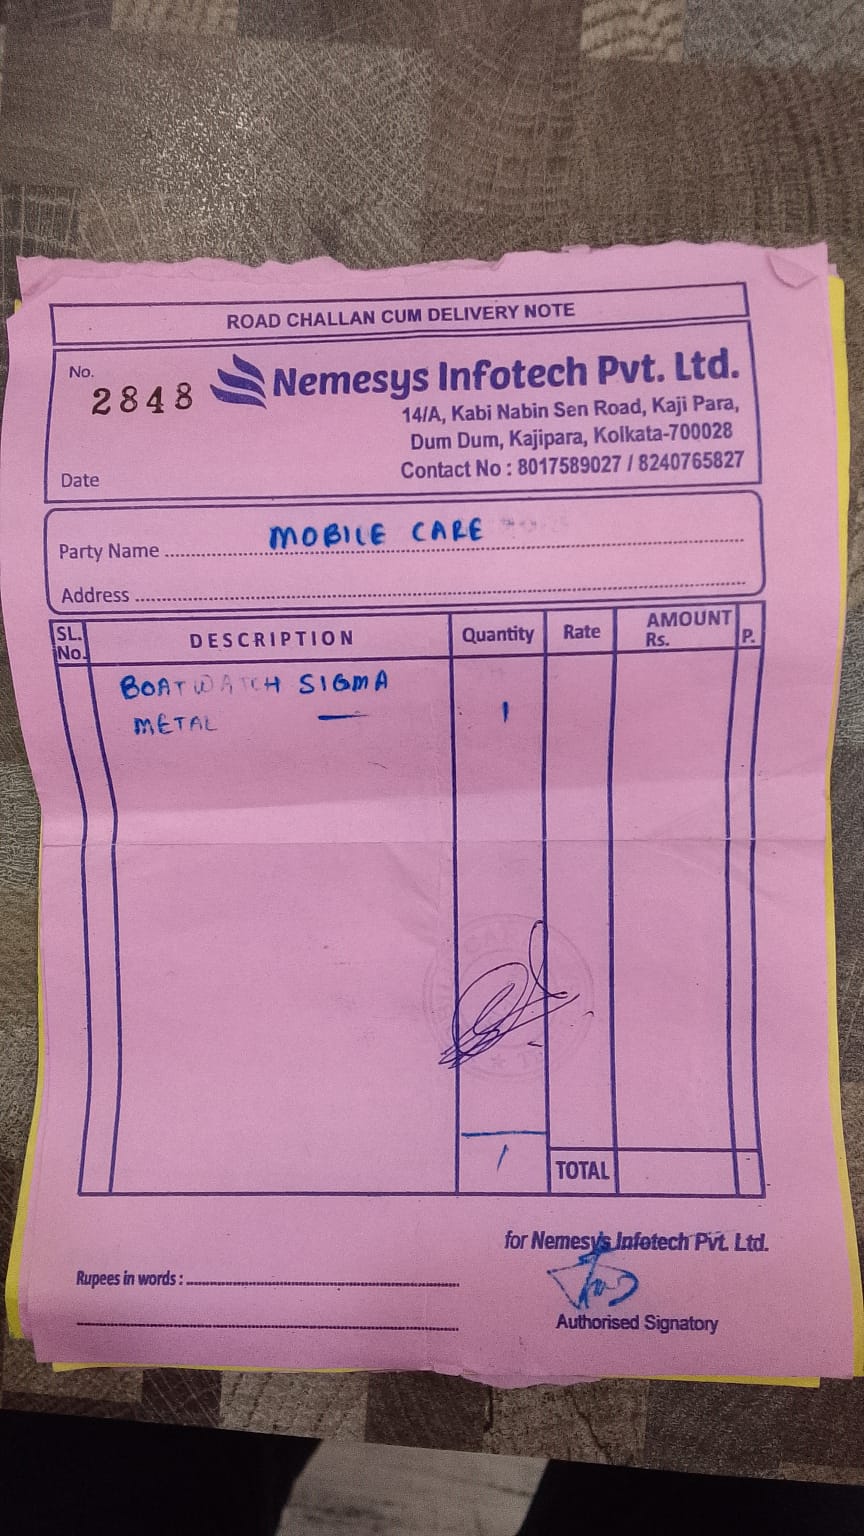 ROAD CHALLAN CUM DELIVERY NOTE
No.
2848
Nemesys Infotech Pvt. Ltd.
14/A, Kabi Nabin Sen Road, Kaji Para,
Dum Dum, Kajipara, Kolkata-700028
Contact No : 8017589027 / 8240765827
Date
Party Name MOBILE CARE
Address
SL. No. DESCRIPTION Quantity Rate AMOUNT Rs. P.
BOAT WATCH SIGMA
METAL — 1
1
TOTAL
for Nemesys Infotech Pvt. Ltd.
Rupees in words :
Authorised Signatory